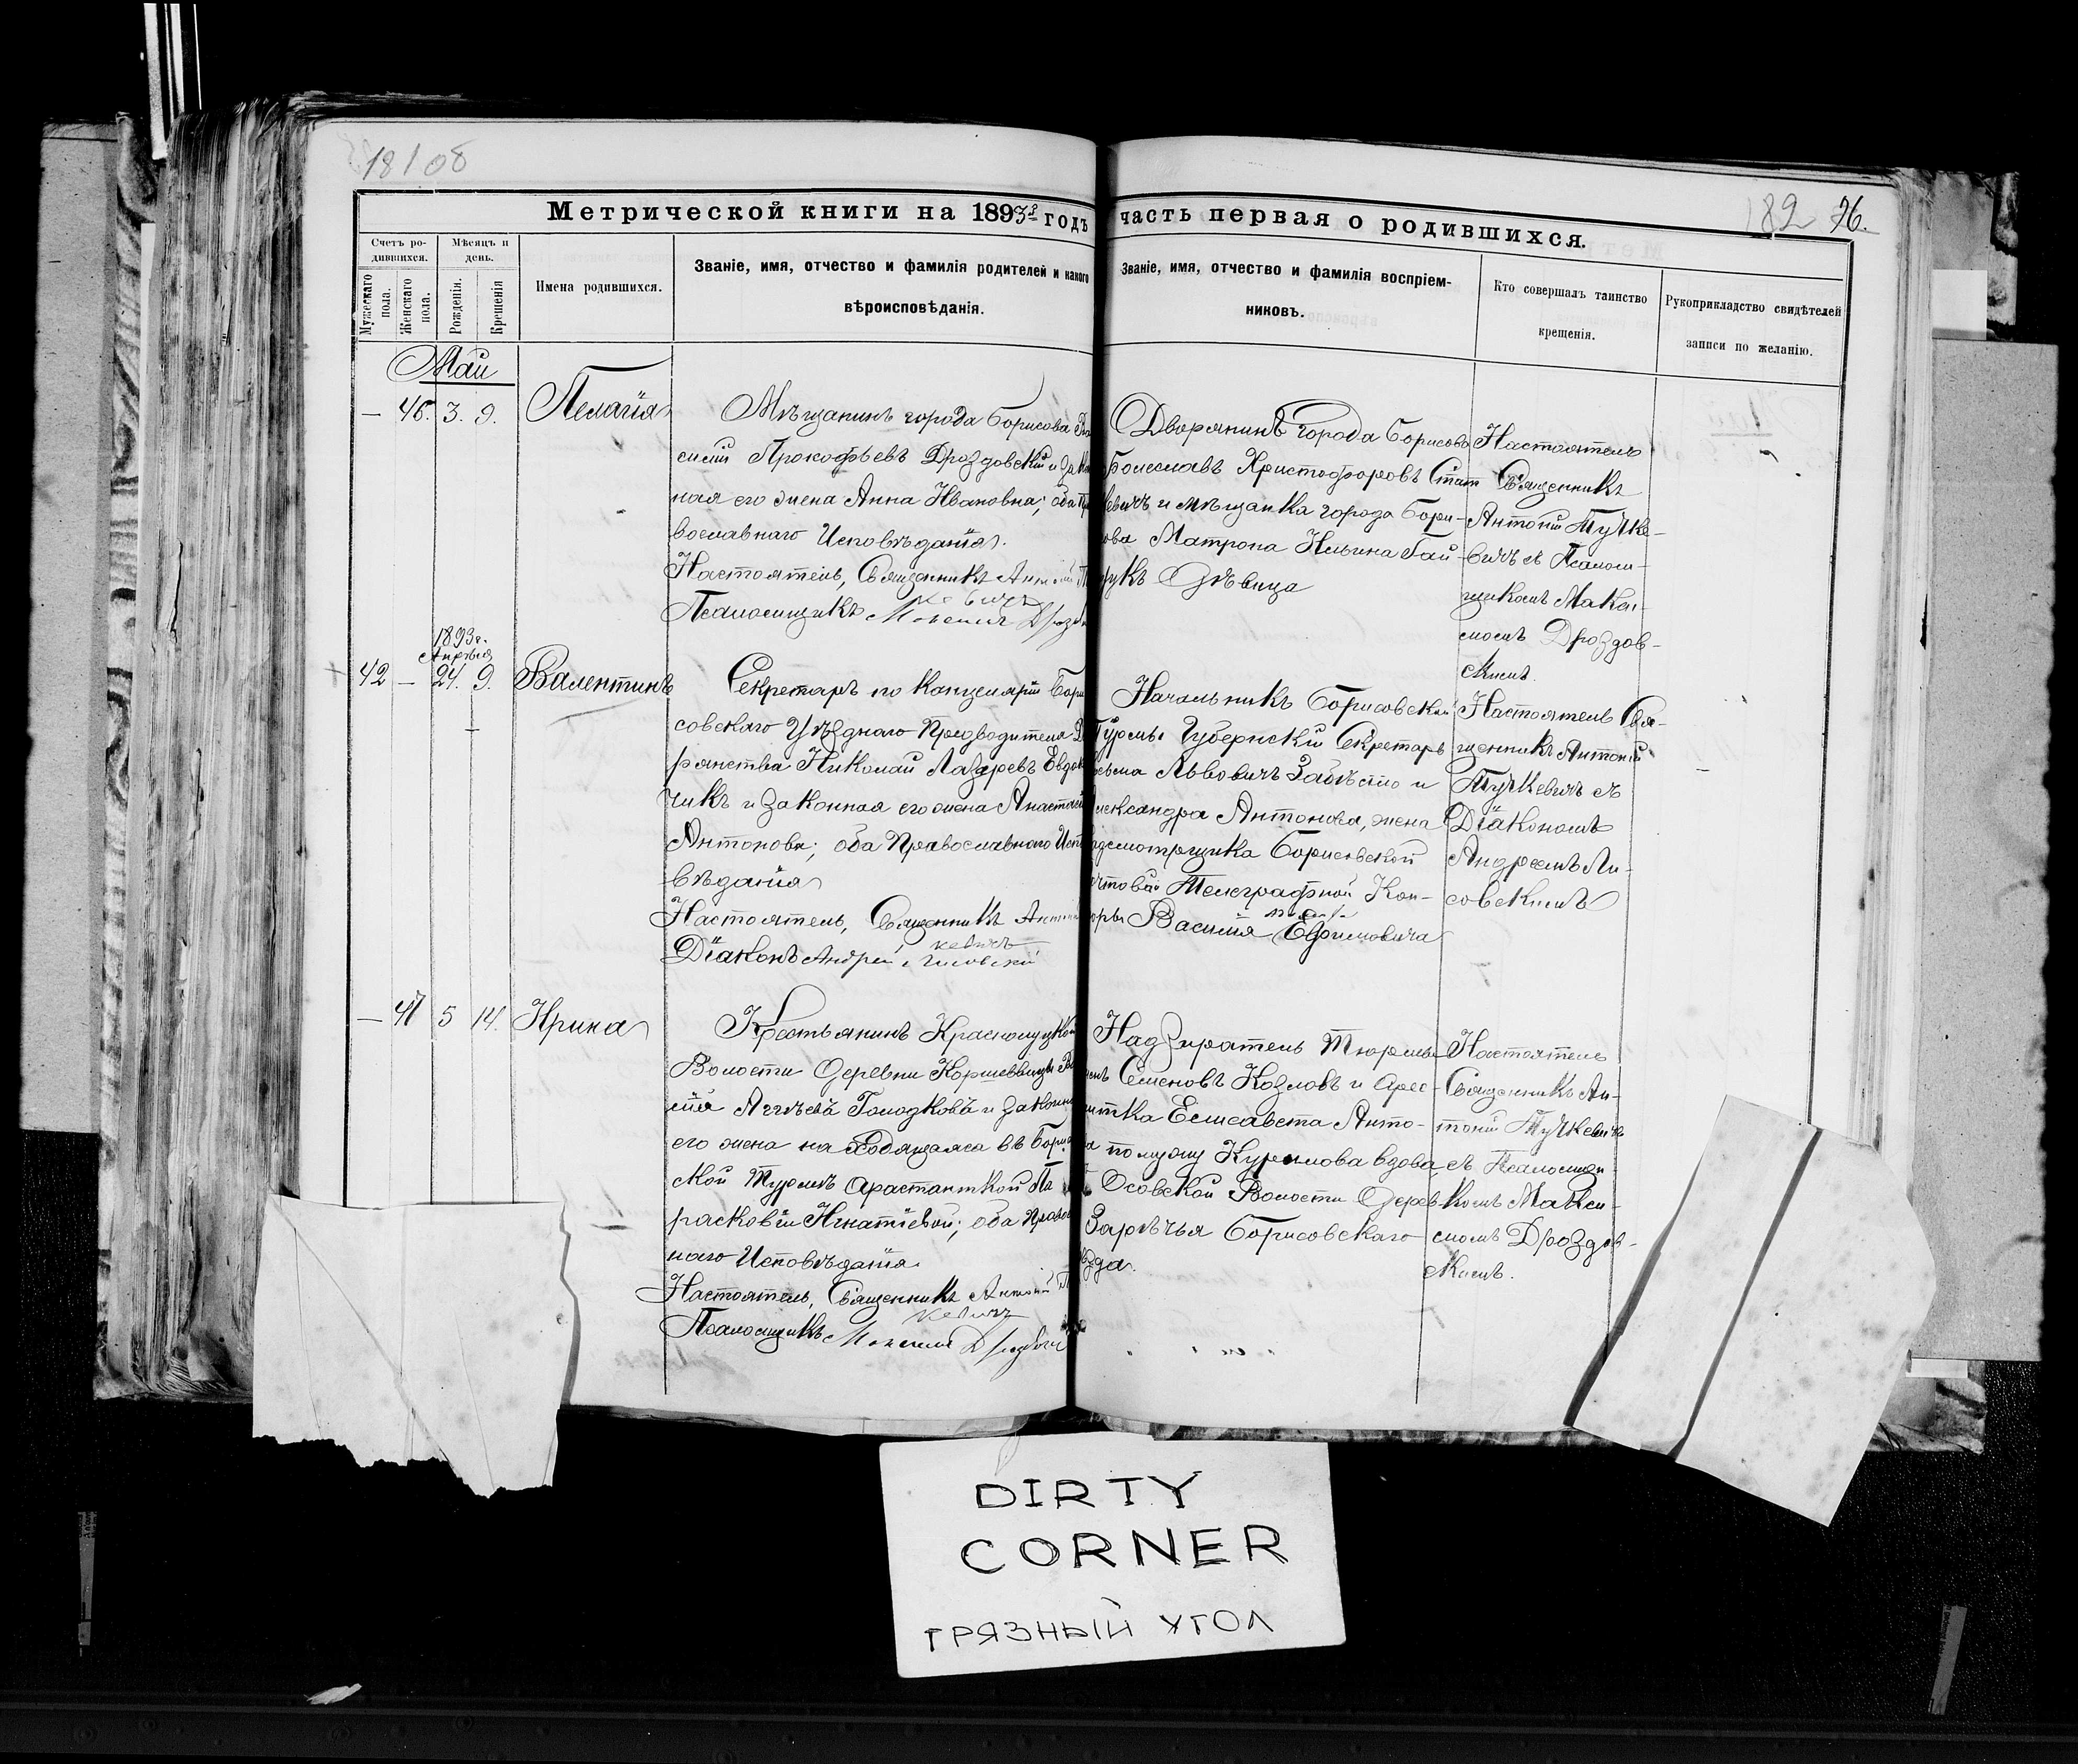 18108
182 76.
Метрической книги на 1893й годъ
часть первая о родившихся.
Счетъ ро-
дившихся.
Мѣсяцъ и
день.
Мужескаго
пола.
Женскаго
пола.
Рожденія.
Крещенія
Имена родившихся.
Званіе, имя, отчество и фамилія родителей и какого
вѣроисповѣданія.
Званіе, имя, отчество и фамилія воспріем-
никовъ.
Кто совершалъ таинство
крещенія.
Рукоприкладство свидѣтелей
записи по желанію.
Май
— 46. 3. 9. Пелагія
Мѣщанинъ города Борисова Ва
силій Прокофьевъ Дроздовскій и закон
ная его жена Анна Ивановна; оба Пра
вославнаго Исповѣданія.
Настоятель, Священникъ Антоній
кевичъ
Псаломщикъ Максимъ Дрозд
Дворянинъ города Борисова
Болеславъ Христофоровъ Стат
кевичъ и мѣщанка города Бори-
сова Матрона Ильина Гай
дукъ Дѣвица
Настоятель
Священникъ
Антоній Тучке-
вичъ съ Псалом-
щикомъ Макси-
момъ Дроздов-
скимъ.
1893г.
Апрѣля
42 — 24. 9. Валентинъ
Секретарь по Канцеляріи Бори
совскаго Уѣзднаго Предводителя Дво
рянства Николай Лазаревъ Евдок
чикъ и законная его жена Анастасія
Антонова; оба Православнаго Испо
вѣданія
Настоятель, Священникъ Антоній
кевичъ
Діаконъ Андрей Лисовскій
Начальникъ Борисовской
Тюрьмы Губернскій Секретарь
Львовичъ Забѣлло и
лександра Антонова, жена
адсмотрщика Борисовской
чтовой Телеграфной Кон-
оры Василія Ефимовича
Настоятель Свя-
щенникъ Антоній
Тучкевичъ съ
Діакономъ
Андреемъ Ли-
совскимъ
— 47 5 14. Ирина
Крестьянинъ Краснолукской
Волости Деревни Коршевицы Ва
силія Аггѣевъ Голодковъ и законная
его жена находящаяся въ Борисов
ской Турмѣ арастанткой Па
расковіи Игнатіевой; оба Правос
наго Исповѣданія.
Настоятель, Священникъ Антоній Т
кевичъ
Псаломщикъ Максимъ Дроздовск
Надзиратель Тюрьмы
Семеновъ Козловъ и арес-
антка Елисавета Анто-
ва по мужу Курилова вдова,
Осовской Волости Дерев
Зарѣчья Борисовскаго
ѣзда.
Настоятель
Священникъ Ан-
тоній Тучкевичъ
съ Псаломщи-
комъ Макси-
момъ Дроздов-
скимъ.
DIRTY
CORNER
ГРЯЗНЫЙ УГОЛ